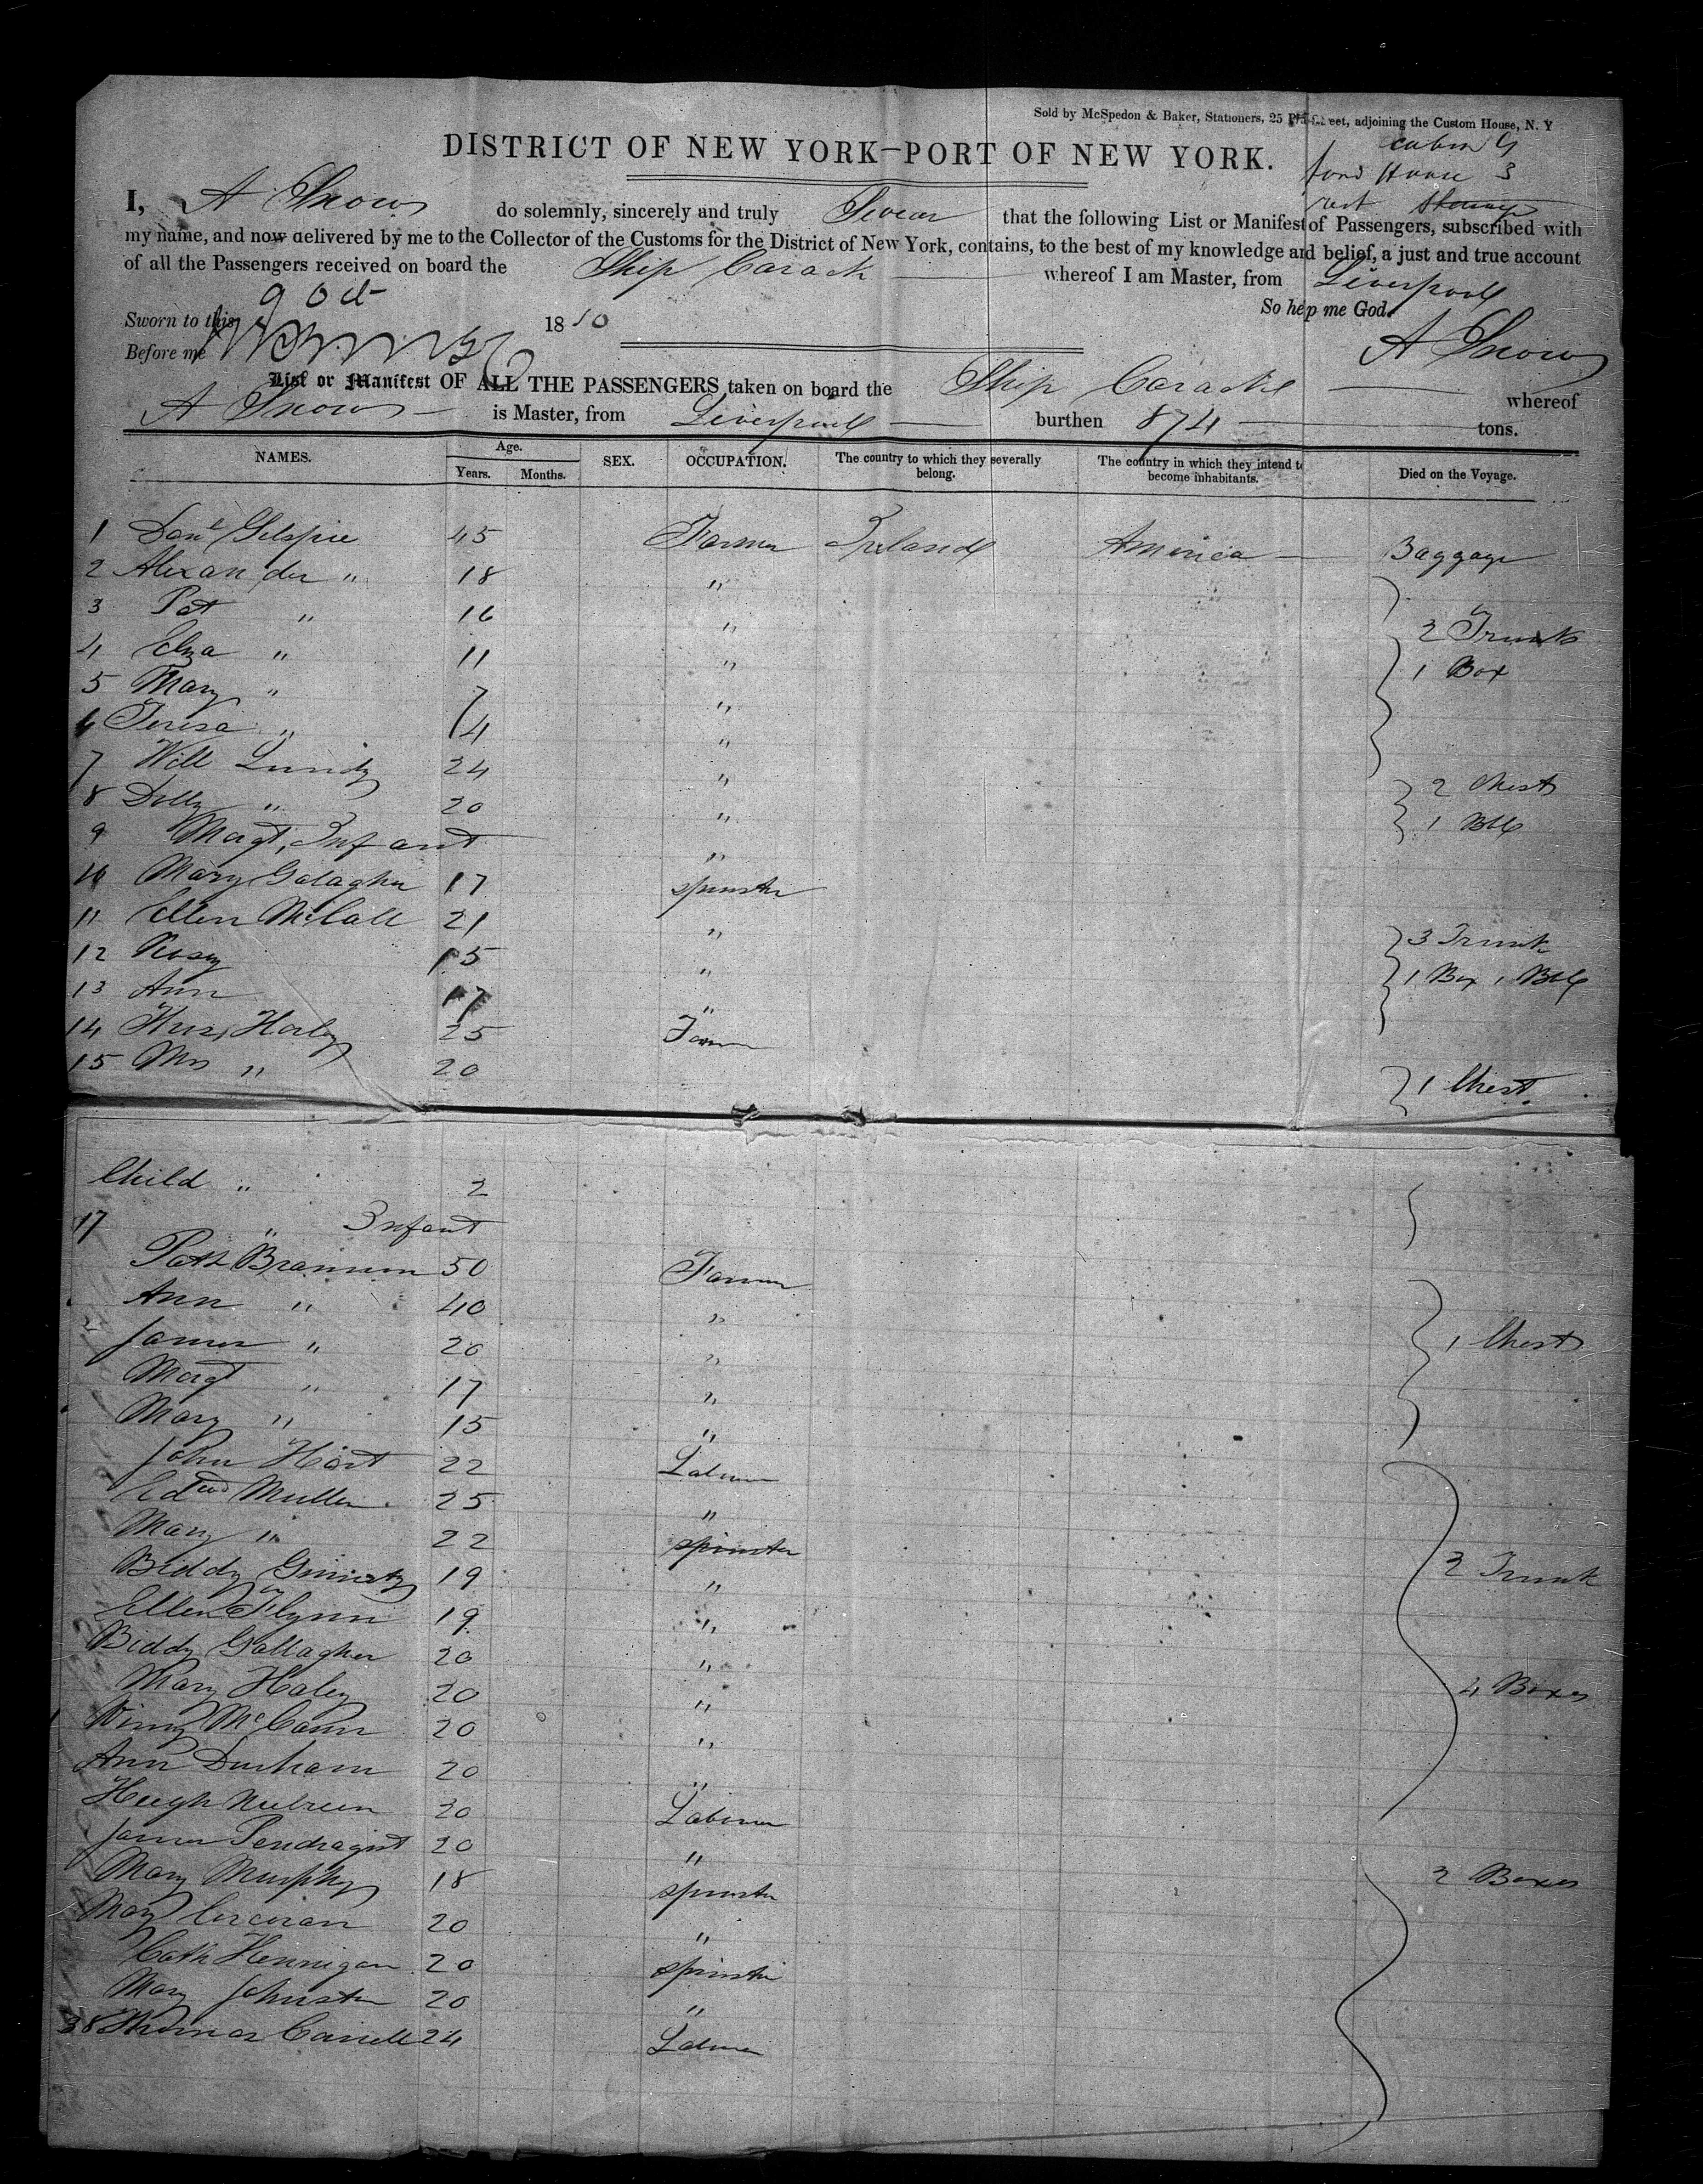 Sold by McSpedon & Baker, Stationers, 25 Pine-Street, adjoining the Custom House, N. Y
DISTRICT OF NEW YORK—PORT OF NEW YORK.
Cabin 9
House 3
rest Steerage
I, A Snow do solemnly, sincerely and truly Swear that the following List or Manifest of Passengers, subscribed with
my name, and now delivered by me to the Collector of the Customs for the District of New York, contains, to the best of my knowledge and belief, a just and true account
of all the Passengers received on board the Ship Carack whereof I am Master, from Liverpool
So help me God.
Sworn to this 9 Oct 1850
Before me
A Snow
List or Manifest OF ALL THE PASSENGERS taken on board the Ship Carack whereof
A Snow is Master, from Liverpool burthen 874 tons.
NAMES. Age. Years. Months. SEX. OCCUPATION. The country to which they severally belong. The country in which they intend to become inhabitants. Died on the Voyage.
1 Danl Gilspie 45 Farmer Ireland America Baggage
2 Alexander " 18 "
3 Pat " 16 " 2 Trunk
4 Eliza " 11 " 1 Box
5 Mary " 7 "
6 Teresa " 4 "
7 Will Lundy 24 " 2 Chest
8 Dolly " 20 " 1 Bbl
9 Margt, Infant "
10 Mary Galagher 17 spinster
11 Ellen McCall 21 " 3 Trunk
12 Rosey 15 " 1 Box 1 Bbl
13 Ann 17 "
14 Harley 25 Farmer
15 Mrs " 20 1 Chest.
Child " 2
17 " Infant
Patk Brannon 50 Farmer
Ann " 40 "
James " 20 " 1 Chest
Margt " 17 "
Mary " 15 "
John Hart 22 Labourer
Edwd Mullen 25 "
Mary " 22 spinster
Biddy 19 " 2 Trunk
Ellen Flynn 19 "
Biddy Gallagher 20 "
Mary Haley 20 " 4 Boxes
Winny McCann 20 "
Ann Durham 20 "
Hugh 20 Labourer
James 20 "
Mary Murphy 18 spinster 2 Boxes
Mary Corcoran 20 "
Cath Hennigan 20 spinster
Mary Johnston 20 "
38 Thomas Carrell 24 Labourer